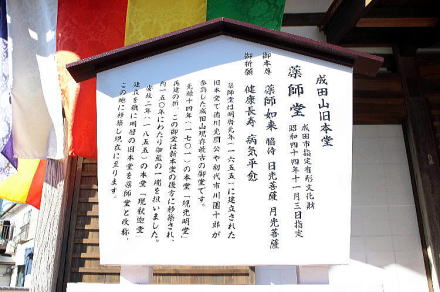 成田山旧本堂
薬師堂
成田市指定有形文化財
昭和四十四年十一月三日指定
御本尊 薬師如来 脇侍 日光菩薩 月光菩薩
御祈願 健康長寿 病気平癒
薬師堂は明暦元年(一六五五)に建立された
旧本堂で徳川光圀公や初代市川團十郎が
参詣した成田山現存最古の御堂です。
元禄十四年(一七〇一)の本堂「現光明堂」
再建の折、この御堂は新本堂の後方に移築され、
一五〇年にわたり御堂の一端を担いました。
安政二年(一八五五)の本堂「現釈迦堂」
建立を機に明暦の旧本堂を薬師堂と改称、
この地に移築し現在に至ります。